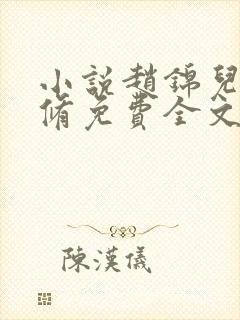 小說趙錦兒
脩免費全文
陳漢儀